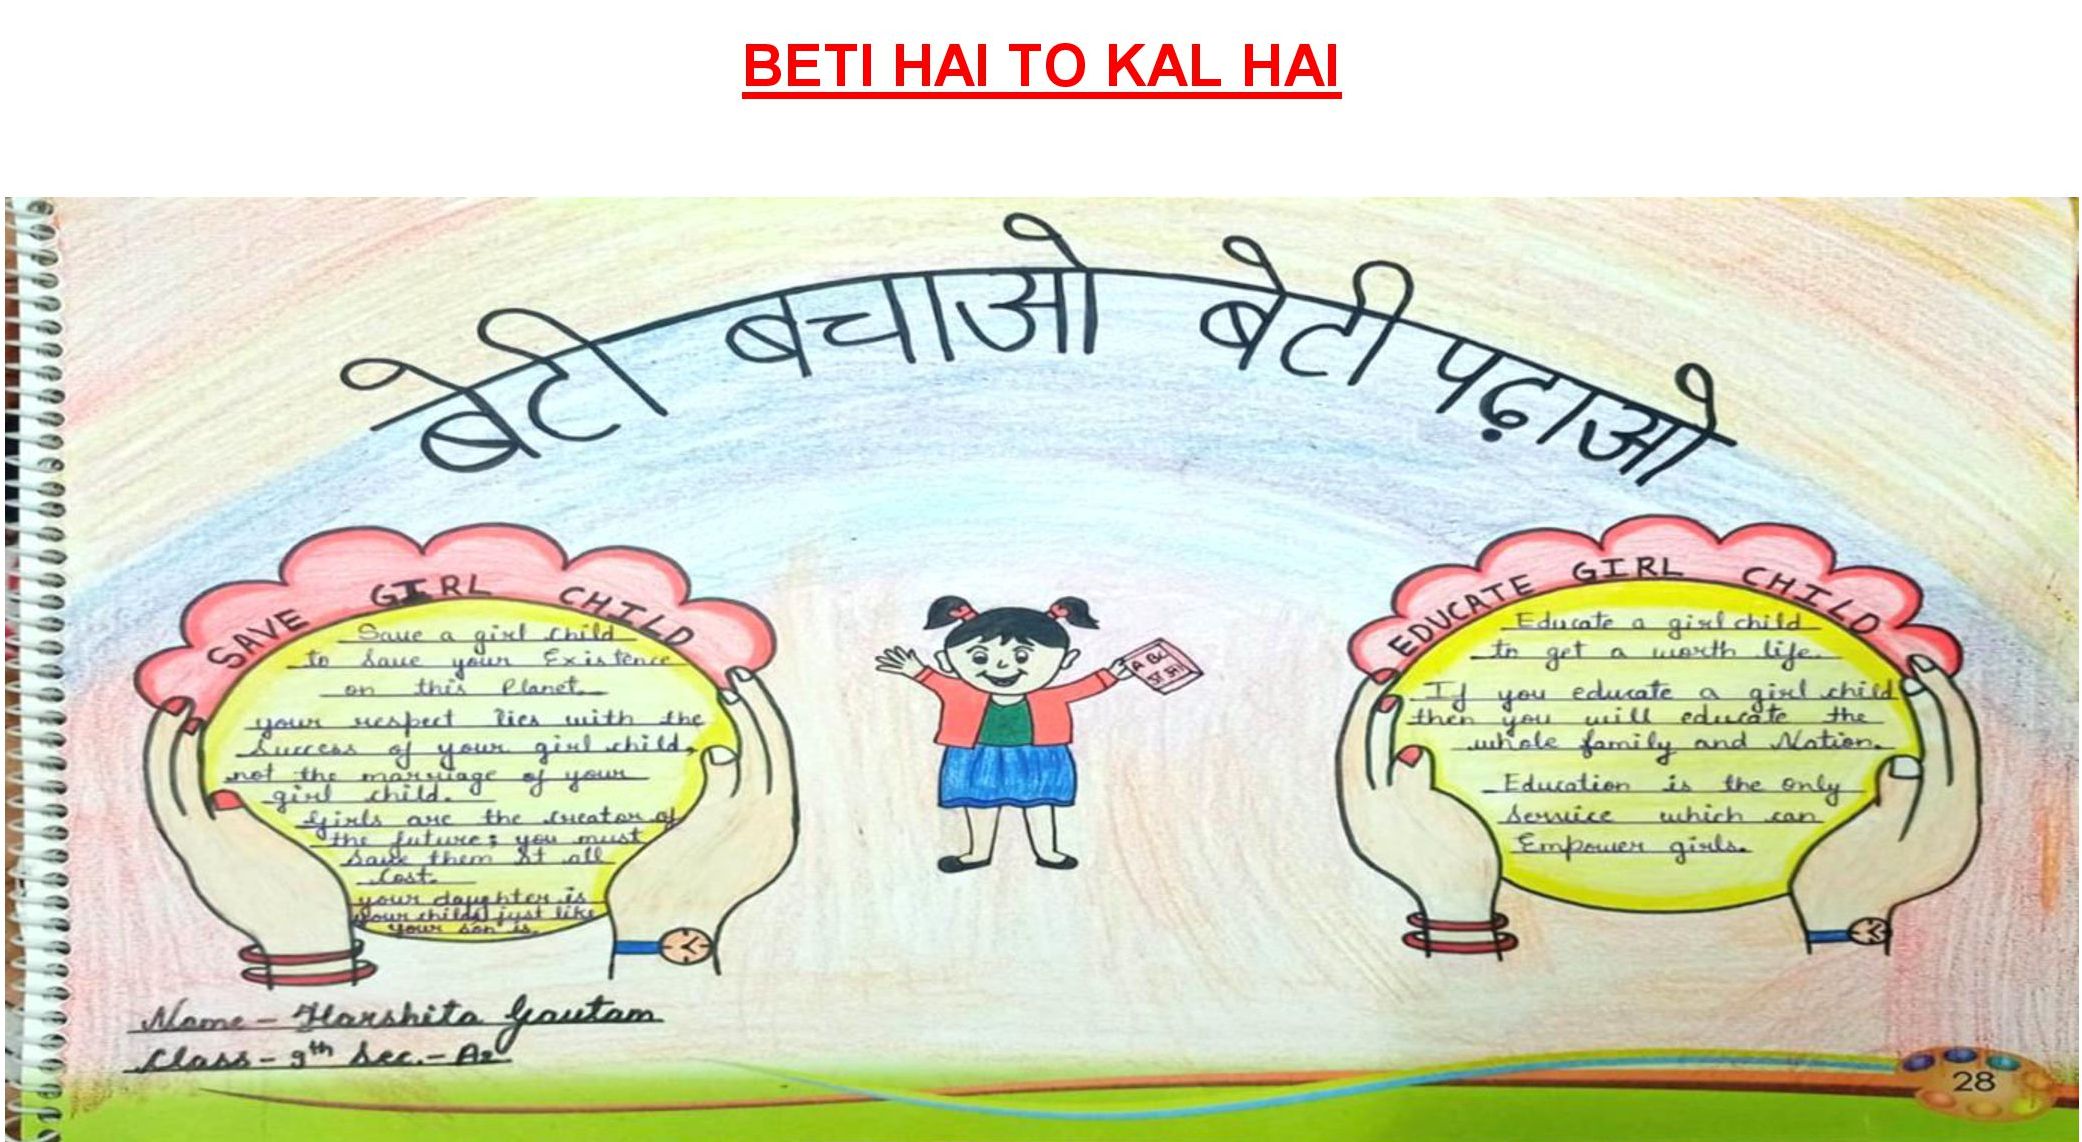 BETI HAI TO KAL HAI
बेटी बचाओ बेटी पढ़ाओ
SAVE GIRL CHILD
Save a girl child
to save your Existence
on this Planet.
your respect lies with the
Success of your girl child,
not the marriage of your
girl child.
Girls are the creator of
the future; you must
save them at all
Cost.
your daughter is
your child just like
your son is.
ABC
EDUCATE GIRL CHILD
Educate a girl child
to get a worth life.
If you educate a girl child
then you will educate the
whole family and Nation.
Education is the only
service which can
Empower girls.
Name - Harshita Gautam
Class - 9th Sec. - A2
28